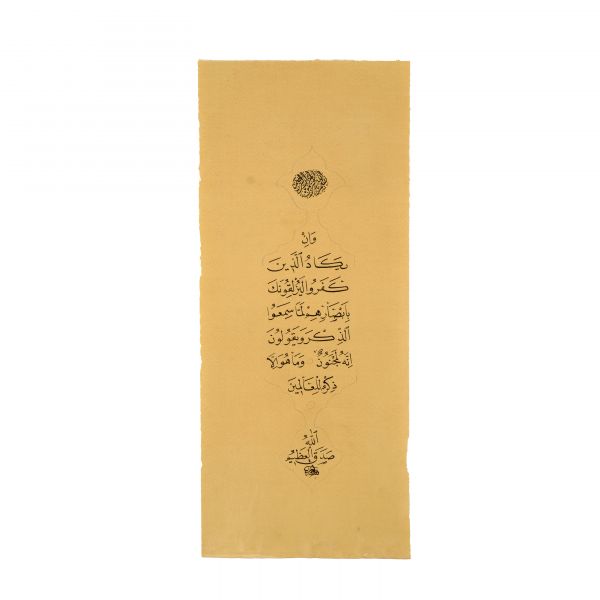 وَإِنْ
يَكَادُ الَّذِينَ
كَفَرُوا لَيُزْلِقُونَكَ
بِأَبْصَارِهِمْ لَمَّا سَمِعُوا
الذِّكْرَ وَيَقُولُونَ
إِنَّهُ لَمَجْنُونٌ وَمَا هُوَ إِلَّا
ذِكْرٌ لِلْعَالَمِينَ
صَدَقَ اللهُ الْعَظِيمُ